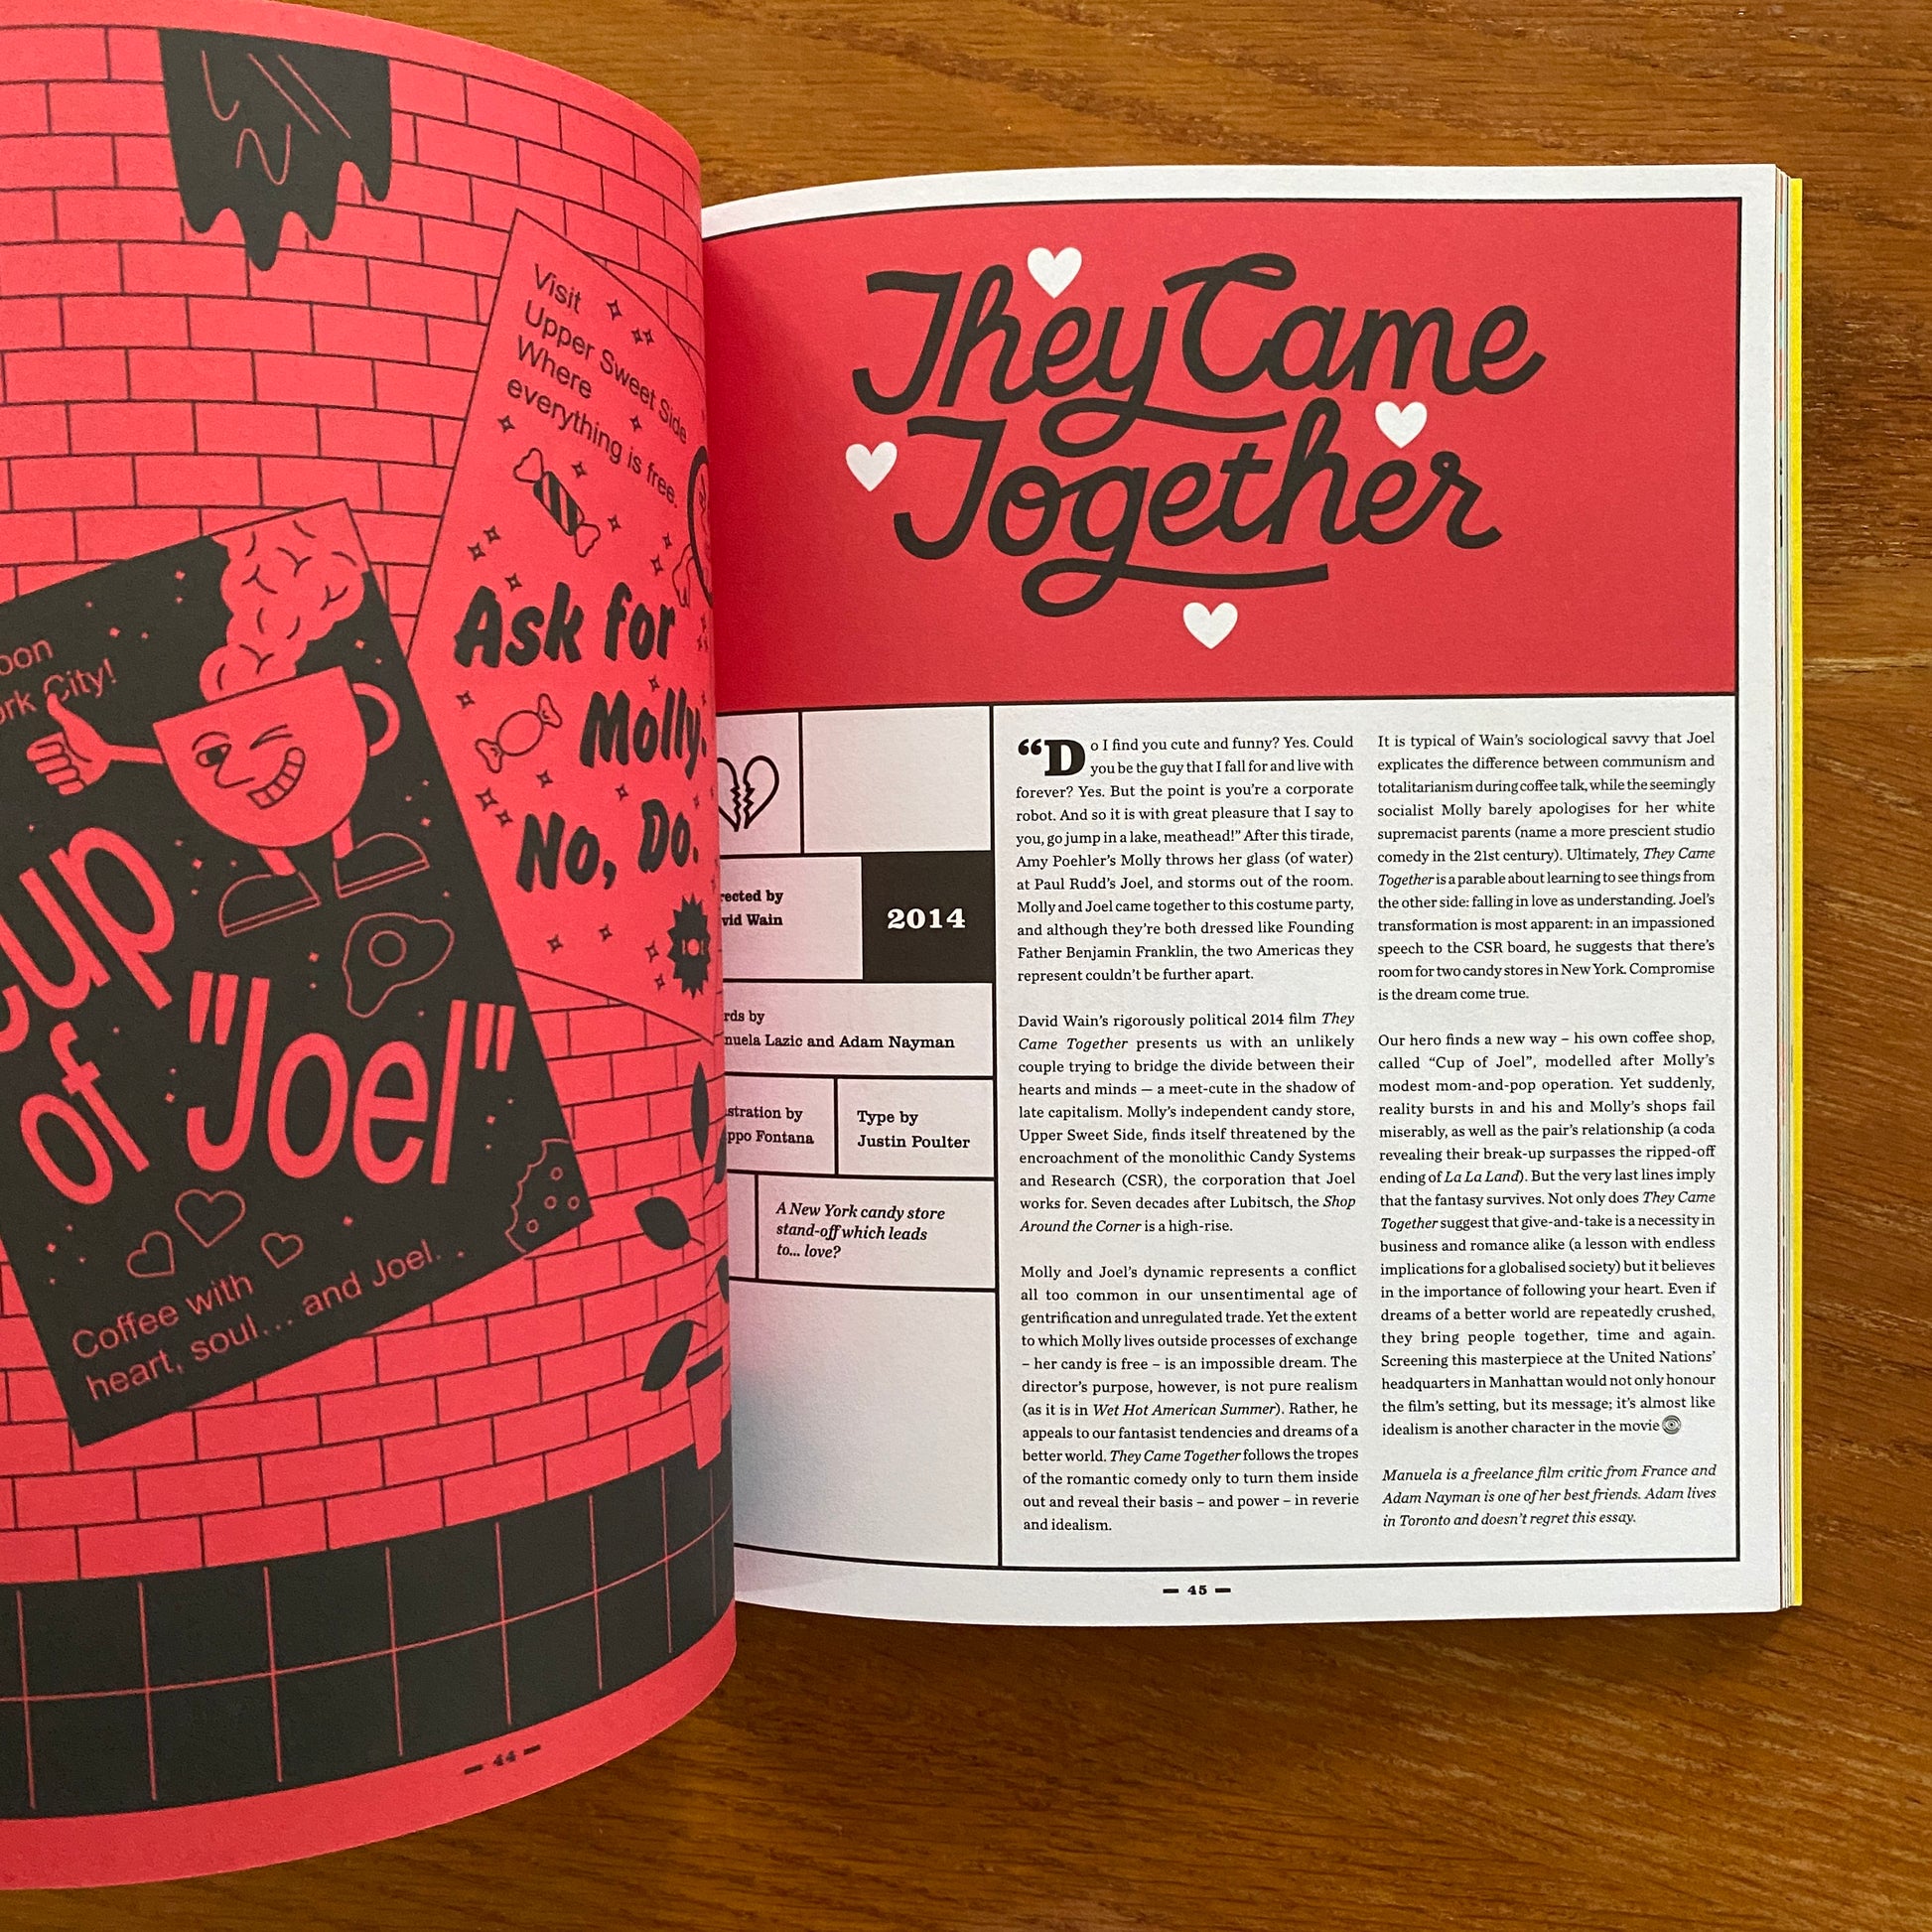 Visit
Upper Sweet Side
Where
everything is free.
Ask for
Molly.
No, Do.
City!
of "Joel"
Coffee with
heart, soul... and Joel...
— 44 —
They Came
Together
2014
by
Wain
by
Lazic and Adam Nayman
by
Fontana
Type by
Justin Poulter
A New York candy store
stand-off which leads
to... love?
“Do I find you cute and funny? Yes. Could
you be the guy that I fall for and live with
forever? Yes. But the point is you’re a corporate
robot. And so it is with great pleasure that I say to
you, go jump in a lake, meathead!” After this tirade,
Amy Poehler’s Molly throws her glass (of water)
at Paul Rudd’s Joel, and storms out of the room.
Molly and Joel came together to this costume party,
and although they’re both dressed like Founding
Father Benjamin Franklin, the two Americas they
represent couldn’t be further apart.
David Wain’s rigorously political 2014 film They
Came Together presents us with an unlikely
couple trying to bridge the divide between their
hearts and minds — a meet-cute in the shadow of
late capitalism. Molly’s independent candy store,
Upper Sweet Side, finds itself threatened by the
encroachment of the monolithic Candy Systems
and Research (CSR), the corporation that Joel
works for. Seven decades after Lubitsch, the Shop
Around the Corner is a high-rise.
Molly and Joel’s dynamic represents a conflict
all too common in our unsentimental age of
gentrification and unregulated trade. Yet the extent
to which Molly lives outside processes of exchange
– her candy is free – is an impossible dream. The
director’s purpose, however, is not pure realism
(as it is in Wet Hot American Summer). Rather, he
appeals to our fantasist tendencies and dreams of a
better world. They Came Together follows the tropes
of the romantic comedy only to turn them inside
out and reveal their basis – and power – in reverie
and idealism.
It is typical of Wain’s sociological savvy that Joel
explicates the difference between communism and
totalitarianism during coffee talk, while the seemingly
socialist Molly barely apologises for her white
supremacist parents (name a more prescient studio
comedy in the 21st century). Ultimately, They Came
Together is a parable about learning to see things from
the other side: falling in love as understanding. Joel’s
transformation is most apparent: in an impassioned
speech to the CSR board, he suggests that there’s
room for two candy stores in New York. Compromise
is the dream come true.
Our hero finds a new way – his own coffee shop,
called “Cup of Joel”, modelled after Molly’s
modest mom-and-pop operation. Yet suddenly,
reality bursts in and his and Molly’s shops fail
miserably, as well as the pair’s relationship (a coda
revealing their break-up surpasses the ripped-off
ending of La La Land). But the very last lines imply
that the fantasy survives. Not only does They Came
Together suggest that give-and-take is a necessity in
business and romance alike (a lesson with endless
implications for a globalised society) but it believes
in the importance of following your heart. Even if
dreams of a better world are repeatedly crushed,
they bring people together, time and again.
Screening this masterpiece at the United Nations’
headquarters in Manhattan would not only honour
the film’s setting, but its message; it’s almost like
idealism is another character in the movie
Manuela is a freelance film critic from France and
Adam Nayman is one of her best friends. Adam lives
in Toronto and doesn’t regret this essay.
— 45 —